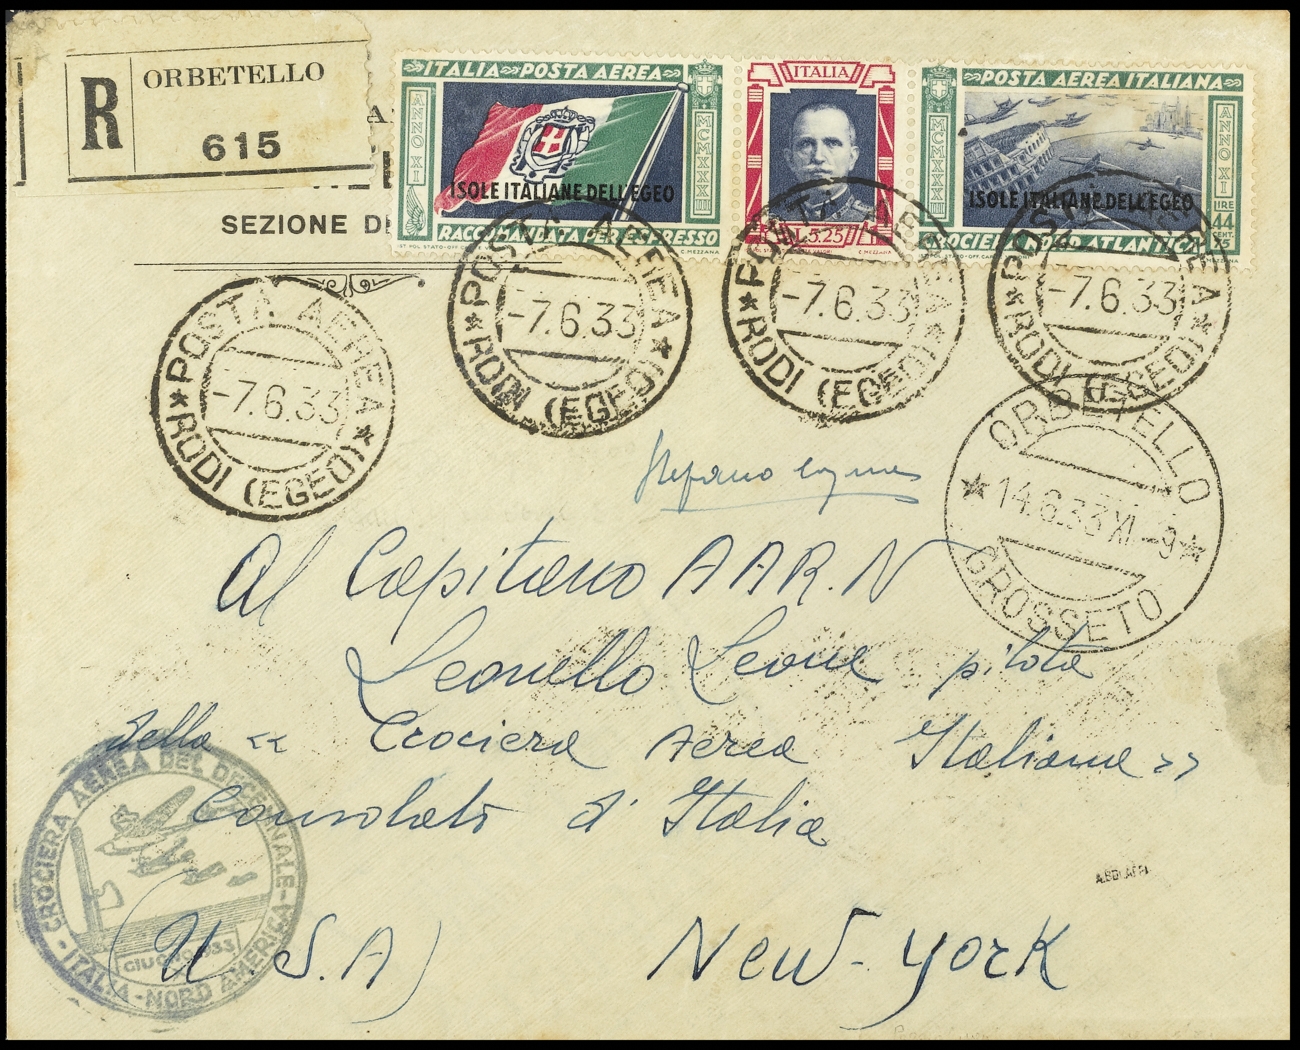 R ORBETELLO
615
SEZIONE DI
ITALIA POSTA AEREA
ANNO XI
MCMXXXIII
ISOLE ITALIANE DELL'EGEO
RACCOMANDATA ESPRESSO
C. MEZZANA
ITALIA
L.5.25
C. MEZZANA
POSTA AEREA ITALIANA
MCMXXXIII
ANNO XI
ISOLE ITALIANE DELL'EGEO
LIRE
44
CENT.
75
CROCIERA NORD ATLANTICA
C. MEZZANA
POSTA AEREA
-7.6.33
RODI (EGEO)
POSTA AEREA
-7.6.33
RODI (EGEO)
POSTA AEREA
-7.6.33
RODI (EGEO)
POSTA AEREA
-7.6.33
RODI (EGEO)
ORBETELLO
14.6.33 XI-9
GROSSETO
Stefano
Al Capitano A A R. N
Leonello Leone pilota
della « Crociera Aerea Italiana »
Consolato d' Italia
(U. S. A) New-York
CROCIERA AEREA DEL DECENNALE
GIUGNO 1933
ITALIA - NORD AMERICA
A. BOLAFFI